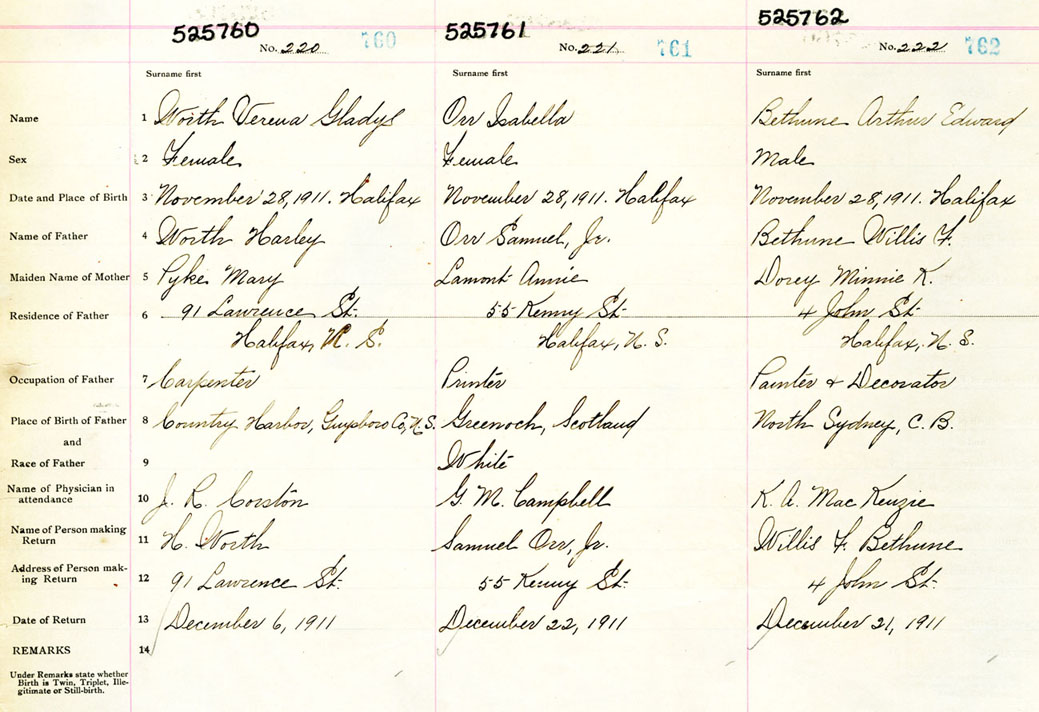 525760 525761 525762
No. 220 760 No. 221 761 No. 222 762
Surname first Surname first Surname first
Name 1 Worth Verena Gladys Orr Isabella Bethune Arthur Edward
Sex 2 Female Female Male
Date and Place of Birth 3 November 28, 1911. Halifax November 28, 1911. Halifax November 28, 1911. Halifax
Name of Father 4 Worth Harley Orr Samuel, Jr. Bethune Willis F.
Maiden Name of Mother 5 Pyke Mary Lamont Annie Dorey Minnie K.
Residence of Father 6 91 Lawrence St. 55 Kenny St. 4 John St.
Halifax, N. S. Halifax, N. S. Halifax, N. S.
Occupation of Father 7 Carpenter Printer Painter & Decorator
Place of Birth of Father 8 Country Harbor, Guysboro Co, N.S. Greenoch, Scotland North Sydney, C. B.
and
Race of Father 9 White
Name of Physician in
attendance 10 J. R. Corston G. M. Campbell K. A. Mac Kenzie
Name of Person making
Return 11 H. Worth Samuel Orr, Jr. Willis F. Bethune
Address of Person mak-
ing Return 12 91 Lawrence St. 55 Kenny St. 4 John St.
Date of Return 13 December 6, 1911 December 22, 1911 December 21, 1911
REMARKS 14
Under Remarks state whether
Birth is Twin, Triplet, Ille-
gitimate or Still-birth.